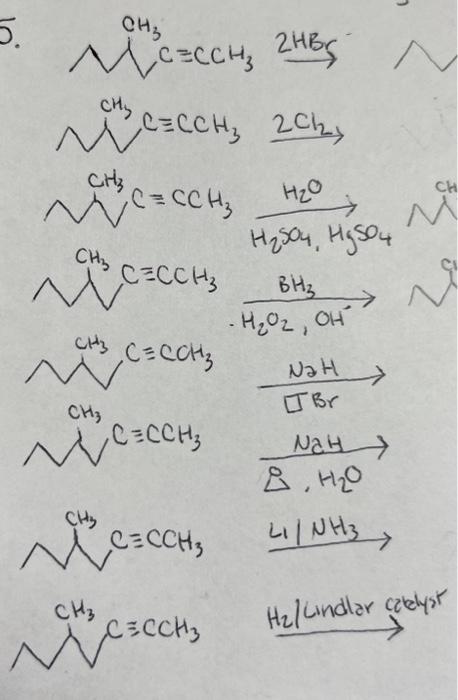 5.
CH3
C≡CCH3 2HBr
CH3
C≡CCH3 2Cl2
CH3
C≡CCH3 H2O
H2SO4, HgSO4
CH
CH3
C≡CCH3 BH3
H2O2, OH-
CH3
C≡CCH3 NaH
Br
CH3
C≡CCH3 NaH
, H2O
CH3
C≡CCH3 Li/NH3
CH3
C≡CCH3 H2/Lindlar catalyst